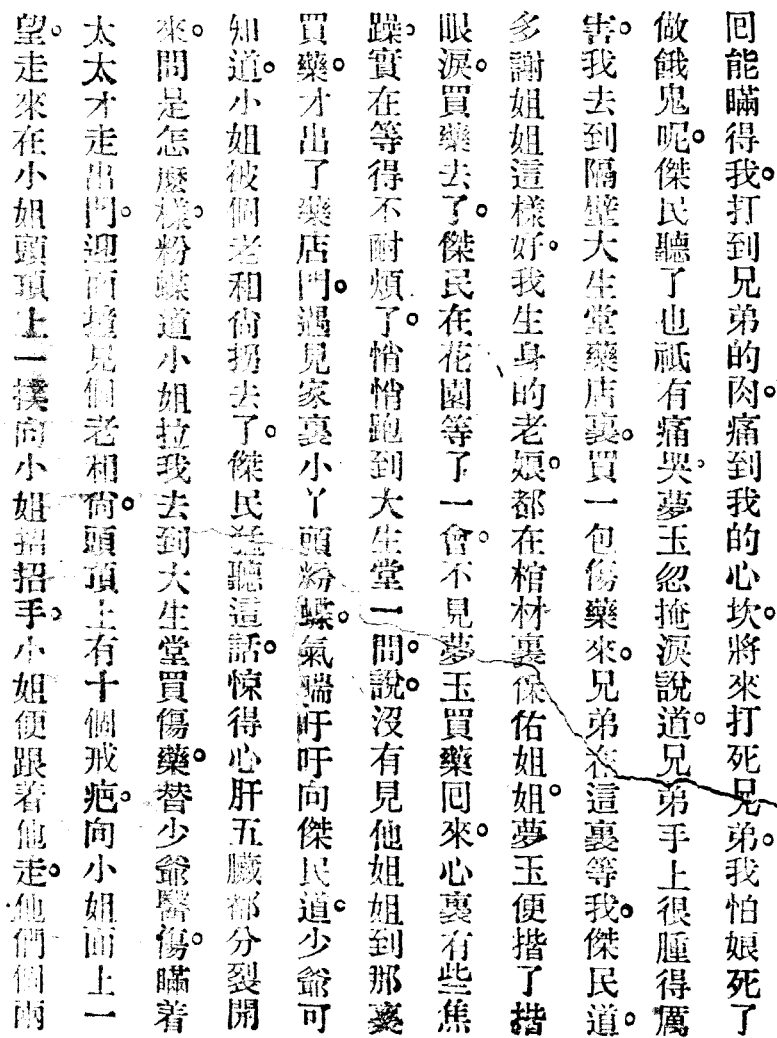 囘能瞞得我。打到兄弟的肉。痛到我的心坎。將來打死兄弟。我怕娘死了
做餓鬼呢。傑民聽了也祇有痛哭。夢玉忽掩淚說道。兄弟手上很腫得厲
害。我去到隔壁大生堂藥店裏。買一包傷藥來。兄弟在這裏等我。傑民道。
多謝姐姐這樣好。我生身的老娘。都在棺材裏保佑姐姐。夢玉便揩了揩
眼淚。買藥去了。傑民在花園等了一會。不見夢玉買藥囘來。心裏有些焦
躁。實在等得不耐煩了。悄悄跑到大生堂一問。說沒有見他姐姐到那裏
買藥。才出了藥店門。遇見家裏小丫頭粉蝶。氣喘吁吁向傑民道。少爺可
知道。小姐被個老和尙拐去了。傑民猛聽這話。惊得心肝五臟都分裂開
來。問是怎麽樣。粉蝶道小姐拉我去到大生堂買傷藥。替少爺醫傷。瞞着
太太才走出門。迎面撞見個老和尙。頭頂上有十個戒疤。向小姐面上一
望。走來在小姐頭頂上一撲。向小姐招招手。小姐便跟着他走。他們個兩